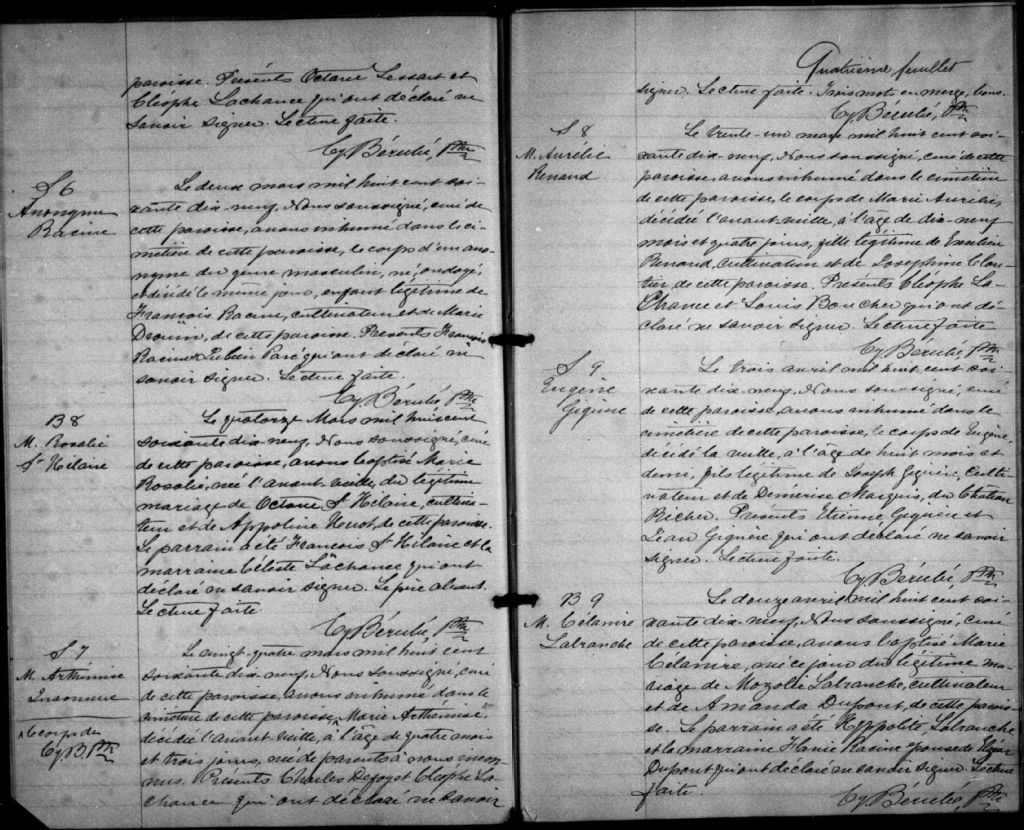 paroisse. Présents Octave Lessart et
Cléophe Lachance qui ont déclaré ne
savoir signer. Lecture faite.
Cy. Bérubé, Ptre
S 6
Anonyme
Racine
Le deux mars mil huit cent soi-
xante dix-neuf, Nous soussigné, curé de
cette paroisse, avons inhumé dans le ci-
metière de cette paroisse, le corps d'un ano-
nyme du genre masculin, né, ondoyé,
et décédé le même jour, enfant légitime de
François Racine, cultivateur et de Marie
Drouin, de cette paroisse. Présents François
Racine Paré qui ont déclaré ne
savoir signer. Lecture faite.
Cy. Bérubé, Ptre
B 8
M. Rosalie
St Hilaire
Le quatorze Mars mil huit cent
soixante dix-neuf, Nous soussigné, curé
de cette paroisse, avons baptisé Marie
Rosalie, née l'avant veille, du légitime
mariage de Octave St Hilaire, cultiva-
teur et de Appoline Huot, de cette paroisse.
Le parrain a été François St Hilaire et la
marraine Céleste Lachance qui ont
déclaré ne savoir signer. Le père absent.
Lecture faite
Cy. Bérubé, Ptre
S 7
M. Arthémise
Inconnue
Le vingt-quatre mars mil huit cent
soixante dix-neuf, Nous soussigné, curé
de cette paroisse, avons inhumé dans le
cimetière de cette paroisse, ^ Marie Arthémise,
décédée l'avant veille, à l'âge de quatre mois
et trois jours, née de parents à nous incon-
nus. Présents Charles Defoy et Cléophe La-
chance qui ont déclaré ne savoir
^ le corps de
Cy B. Ptre
Quatrième feuillet
signer. Lecture faite. Trois mots en marge, bons.
Cy. Bérubé, Ptre
S 8
M. Aurélie
Renaud
Le trente-un mars mil huit cent soi-
xante dix-neuf, Nous soussigné, curé de cette
paroisse, avons inhumé dans le cimetière
de cette paroisse, le corps de Marie Aurélie,
décédée l'avant-veille, à l'âge de dix-neuf
mois et quatre jours, fille légitime de
Renaud, cultivateur et de Josephine Clou-
tier de cette paroisse. Présents Cléophe La-
Chance et Louis Boucher qui ont dé-
claré ne savoir signer. Lecture faite
Cy. Bérubé, Ptre
S 9
Eugène
Giguère
Le trois avril mil huit cent soi-
xante dix-neuf, Nous soussigné, curé
de cette paroisse, avons inhumé dans le
cimetière de cette paroisse, le corps de Eugène,
décédé la veille, à l'âge de huit mois et
demi, fils légitime de Joseph Giguère, culti-
vateur et de Démerise Marquis, du Château
Richer. Présents Etienne Giguère et
Jean Giguère qui ont déclaré ne savoir
signer. Lecture faite.
Cy. Bérubé Ptre
B 9
M. Célanire
Labranche
Le douze avril mil huit cent soi-
xante dix-neuf, Nous soussigné, curé
de cette paroisse, avons baptisé Marie
Célanire, née ce jour du légitime ma-
riage de Labranche, cultivateur
et de Amanda Dupont, de cette parois-
se. Le parrain a été Hyppolite Labranche
et la marraine Flavie Racine épouse de
Dupont qui ont déclaré ne savoir signer. Lecture
faite.
Cy. Bérubé, Ptre